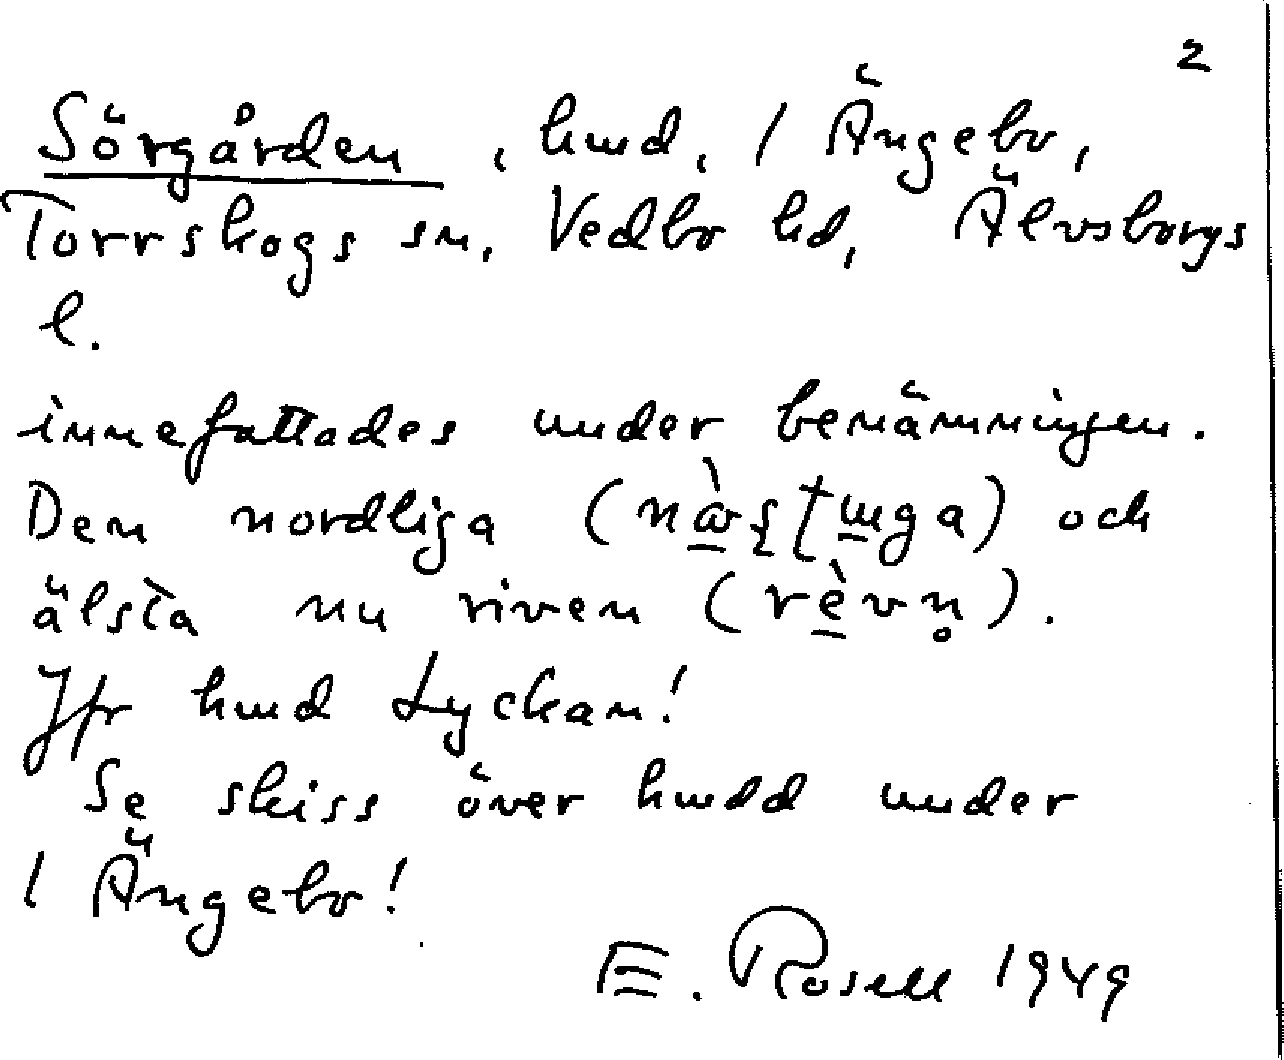 2
Sörgården, hmd, 1 Ängebo,
Torrskogs sn, Vedbo hd, Älvsborgs
l.
innefattades under benämningen.
Den nordliga och
älsta nu riven (rèvn̥).
Jfr hmd Lyckan!
Se skiss över hmdd under
1 Ängebo!
E. Rosell 1949